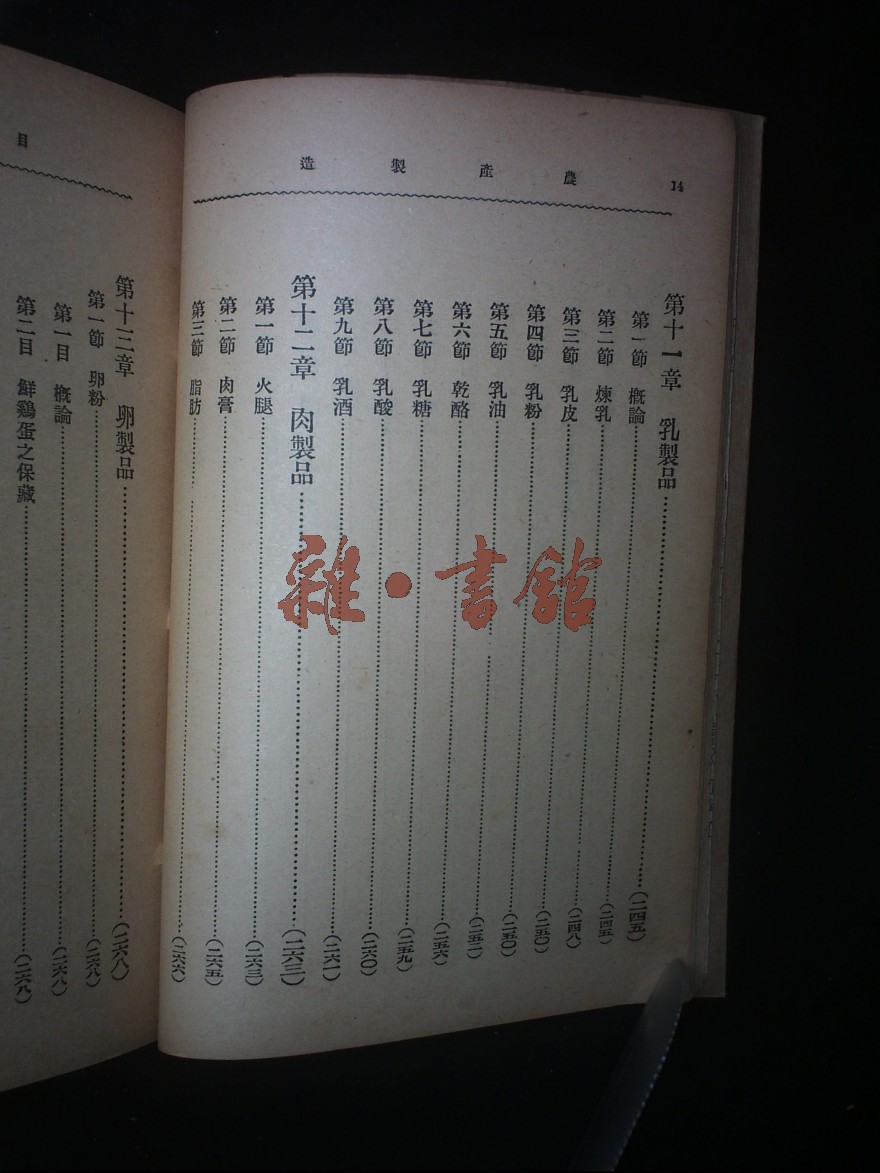 14 農產製造
第十一章 乳製品……(二四五)
第一節 概論……(二四五)
第二節 煉乳……(二四八)
第三節 乳皮……(二五〇)
第四節 乳粉……(二五〇)
第五節 乳油……(二五二)
第六節 乾酪……(二五六)
第七節 乳糖……(二五九)
第八節 乳酸……(二六〇)
第九節 乳酒……(二六一)
第十二章 肉製品……(二六三)
第一節 火腿……(二六三)
第二節 肉膏……(二六五)
第三節 脂肪……(二六六)
目
第十三章 卵製品……(二六八)
第一節 卵粉……(二六八)
第一目 概論……(二六八)
第二目 鮮鷄蛋之保藏……(二六八)
雜·書館